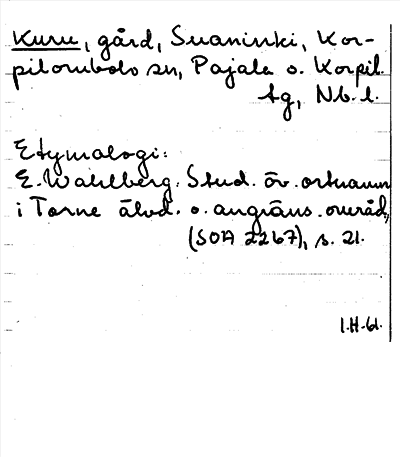 Kuru, gård, Suaninki, Kor-
pilombolo sn, Pajala o. Korpil.
tg, Nb. l.
Etymologi:
E. Wahlberg. Stud. öv. ortnamn
i Torne älvd. o. angräns. område,
(SOA 2267), s. 21.
I.H-61.